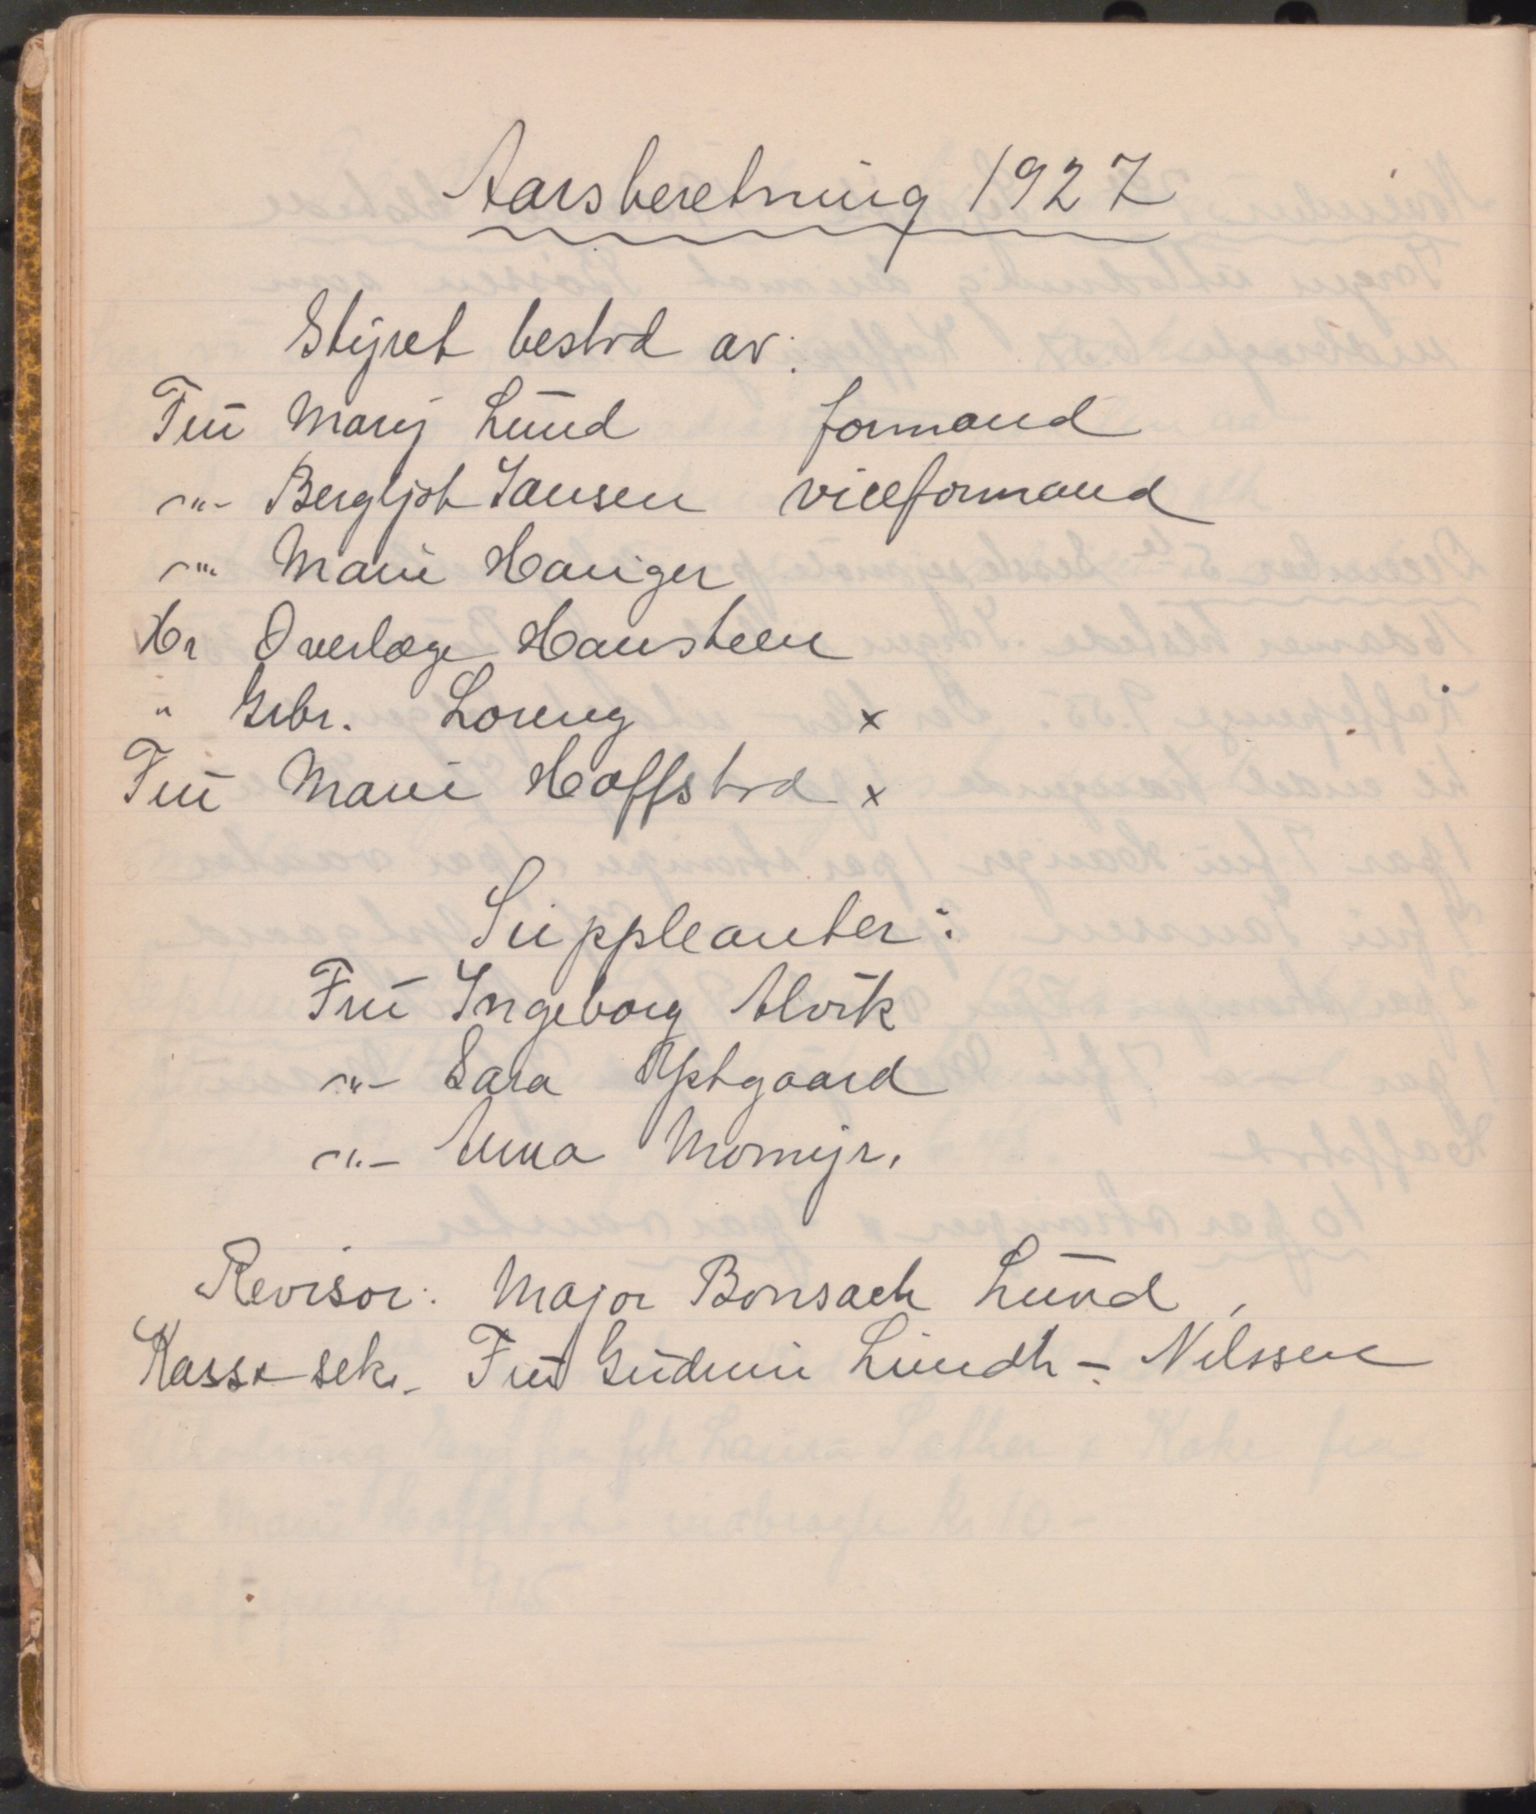 Aarsberetning 1927
Styret bestod av:
Fru Mary Lund formand
-"- Bergljot Jansen viceformand
-"- Marie Hauger
Hr Overlæge Hansteen
" Grbr. Loreng x
Fru Marie Hoffstad x
Suppleanter:
Fru Ingeborg Alvik
-"- Sara Ystgaard
-"- Anna Momyr.
Revisor: Major Bonsach Lund,
Kasse sek. Fru Gudrun Lundh - Nilssen